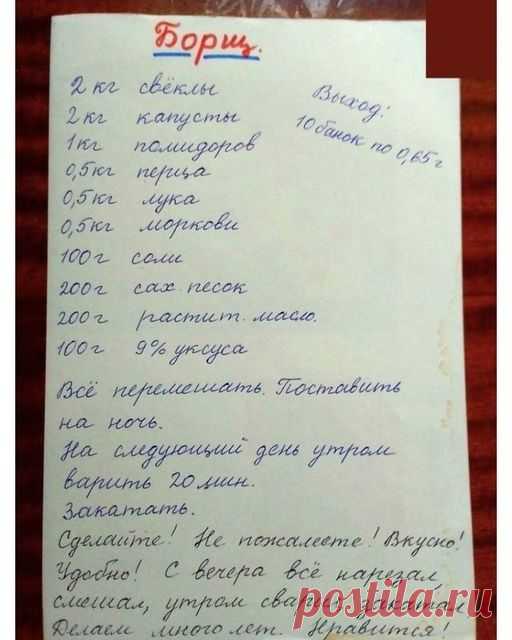 Борщ.
2 кг свёклы
2 кг капусты
1 кг помидоров
0,5кг перца
0,5кг лука
0,5кг моркови
100 г соли
200г сах. песок
200г растит. масло.
100г 9% уксуса
Выход:
10 банок по 0,65 г
Всё перемешать. Поставить
на ночь.
На следующий день утром
варить 20 мин.
Закатать.
Сделайте! Не пожалеете! Вкусно!
Удобно! С вечера всё нарезал,
смешал, утром сварил, закатал
Делаем много лет. Нравится!
postila.ru